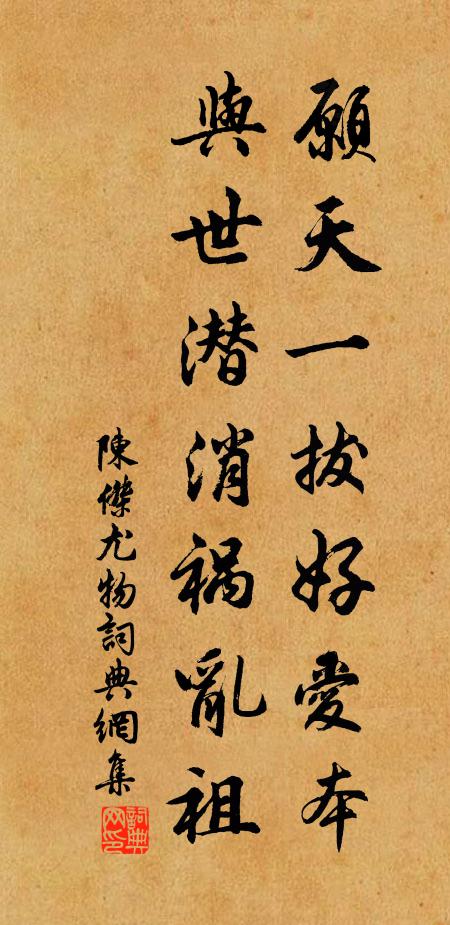 願天一拔好愛本
與世潛消禍亂祖
陳傑尤物詞典網集
詞典网印